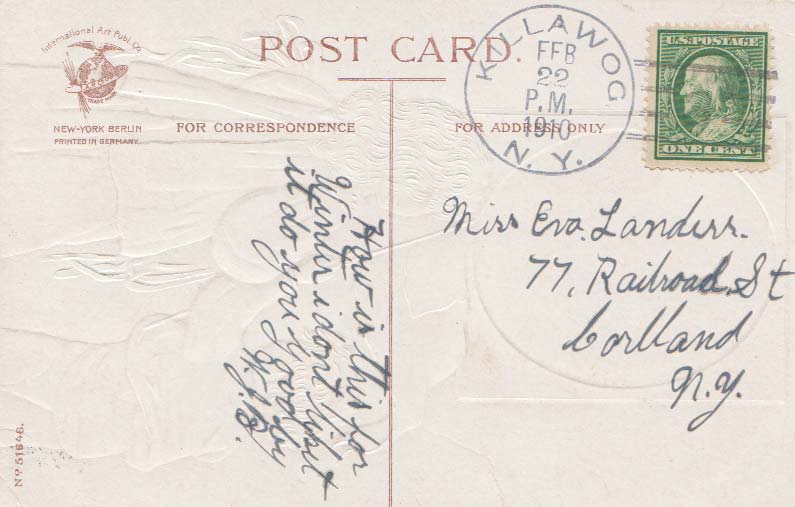 International Art Publ. Co.
TRADE MARK
NEW-YORK BERLIN
PRINTED IN GERMANY.
POST CARD.
FOR CORRESPONDENCE
FOR ADDRESS ONLY
KILLAWOG
FEB
22
P.M.
1910
N.Y.
U.S. POSTAGE
ONE CENT
How is this for
Winter i dont like
it do you good by
Miss Eva Landers.
77, Railroad, St
Cortland
N.Y.
No 51646.